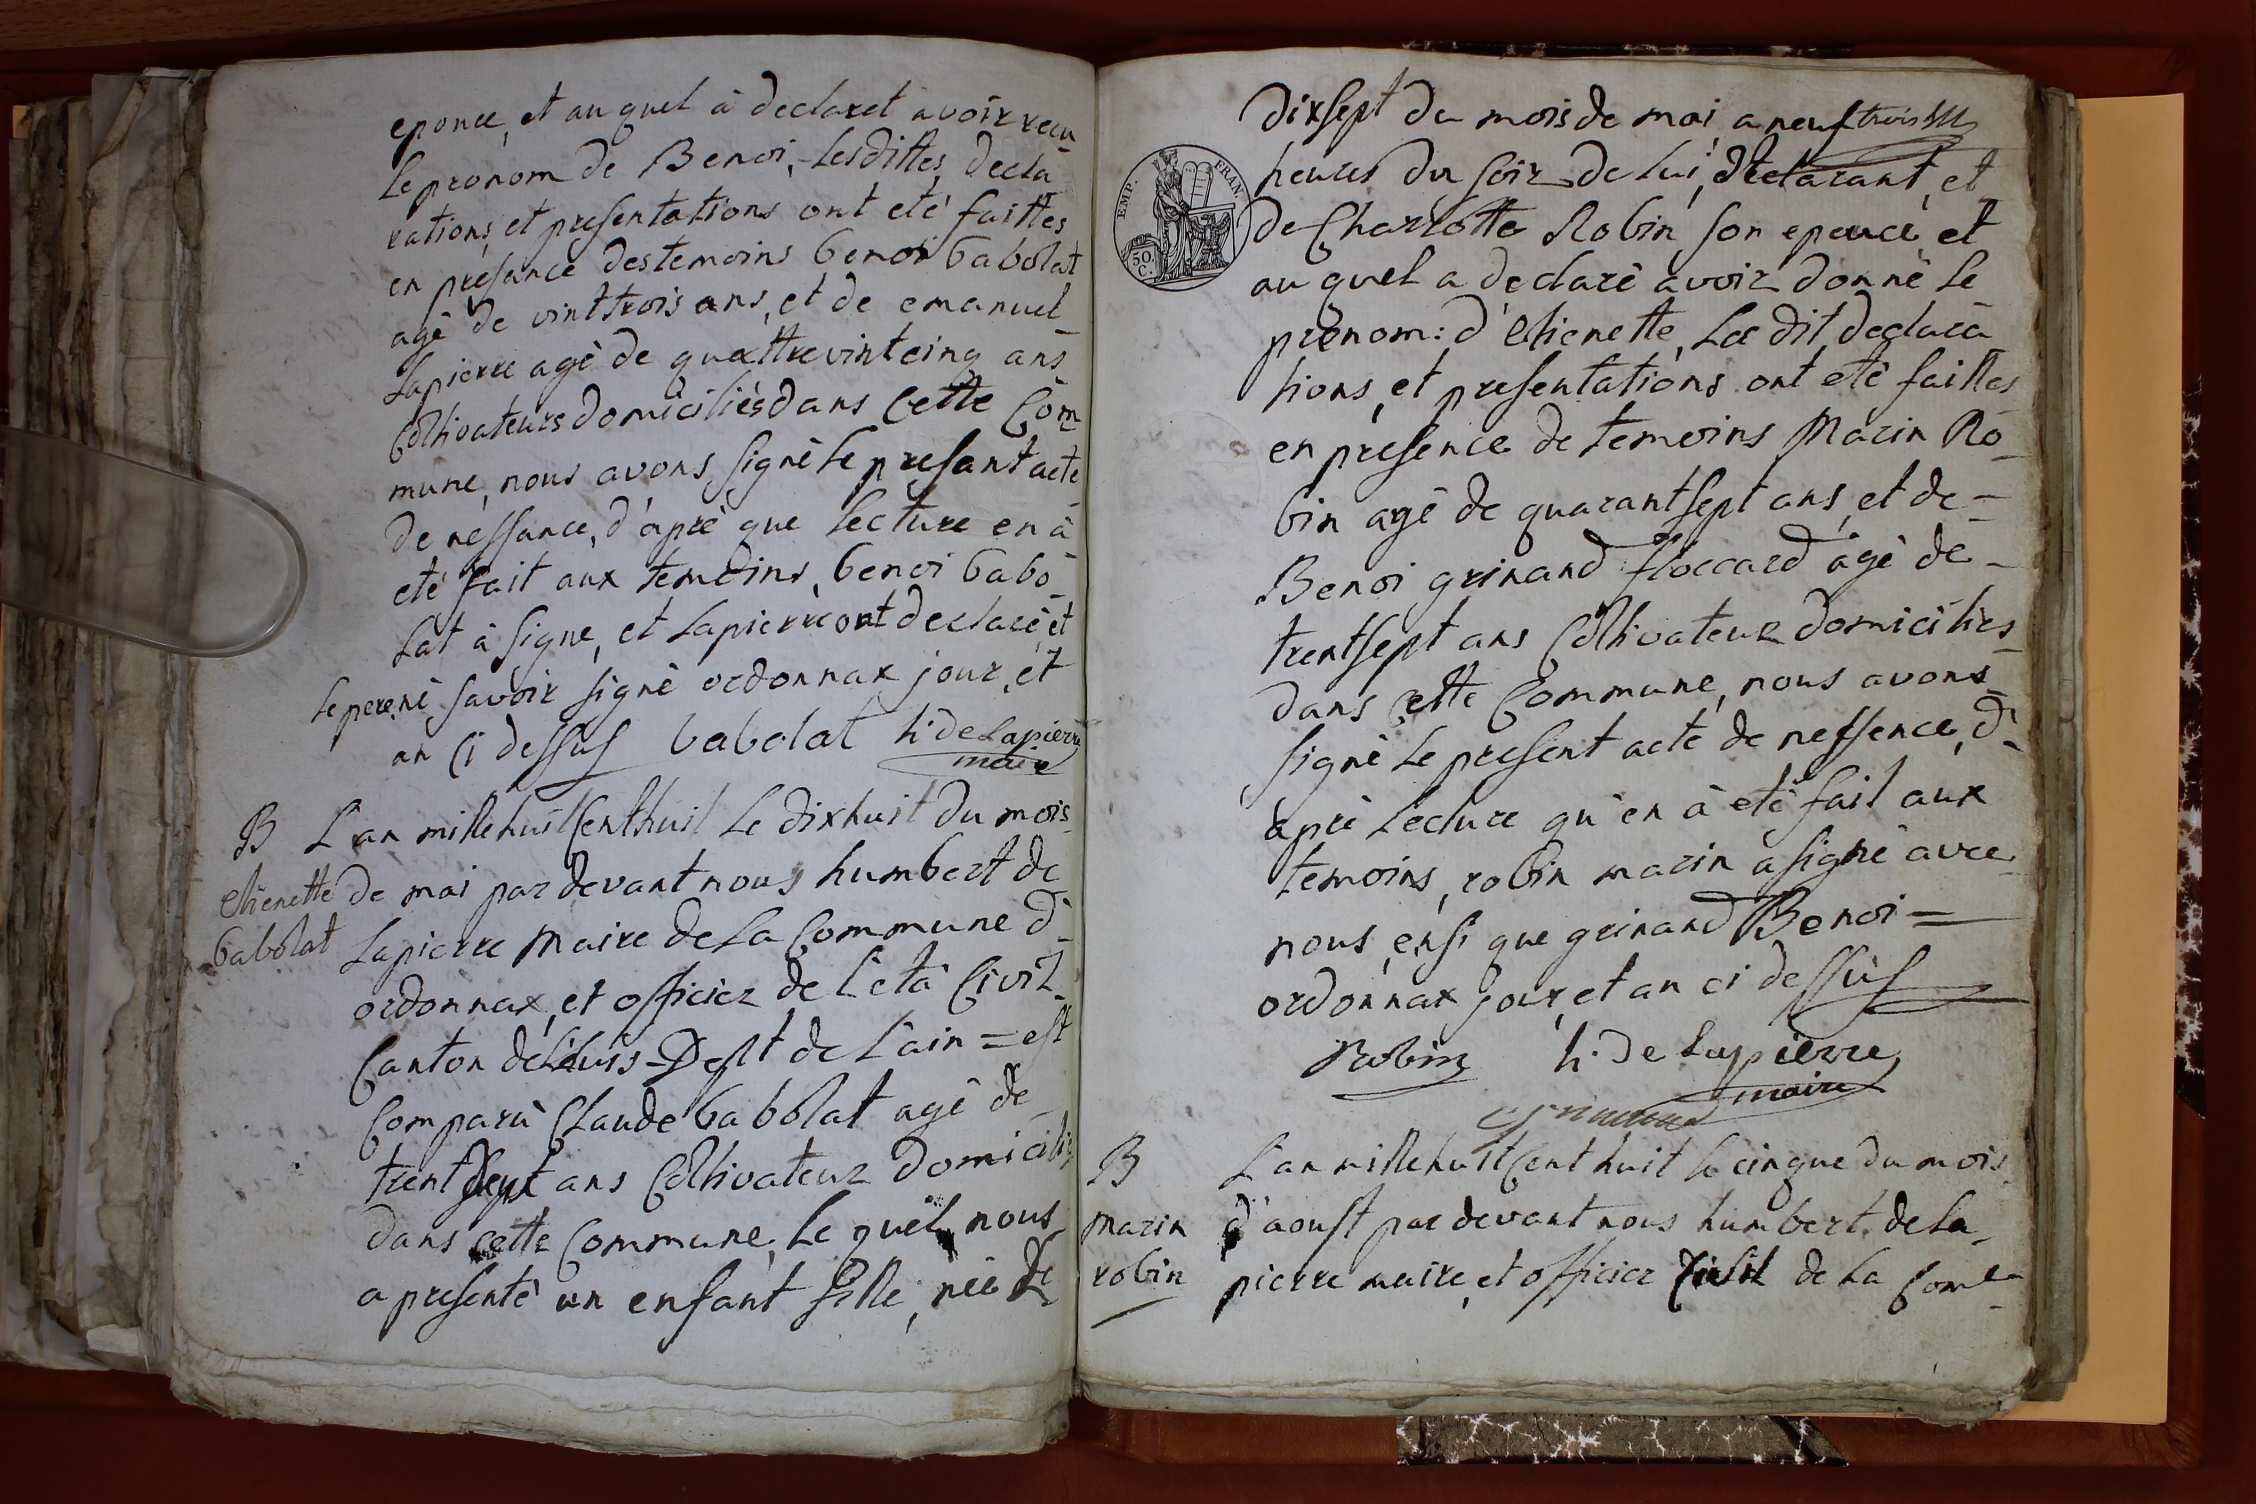 eponce, et au quel à declaret avoir recu
Le pronom de Benoi, Lesdittes, decla
rations et presentations ont eté faittes
en presance des temoins benoi babolat
agé de vint trois ans, et de emanuel
Lapierre agé de quattrevintcinq ans
Coltivateurs domiciliés dans Cette Com
mune, nous avons signé Le presant acte
de nessance, d'aprè que Lecture en à
eté fait aux temoins, benoi babo
Lat à signe, et Lapierre ont declaré, et
le pere né savoir signé ordonnax jour, et
an Ci dessus babolat h. de Lapierre
maire
B L'an mille huit Cent huit Le dixhuit du mois
etienette de mai par devant nous humbert de
babolat Lapierre Maire de La Commune d'
ordonnax, et officier de L'eta Civil
Canton de Dept de L'ain = est
Comparu Claude babolat agé de
trent sept ans Coltivateur domicilié
dans cette Commune, Le quel nous
a presenté un enfant fille, née Le
dixsept du mois de mai a neuf trois
EMP. FRAN.
50. C.
heures du soir de Lui, declarant, et
de Charlotte Robin son epouce, et
au quel a declaré avoir donné Le
prenom: d'etienette, Les dit, declara
tions, et presentations ont eté faittes
en presence de temoins Marin Ro
bin agé de quarantsept ans, et de
Benoi grinand floccard âgé de
trentsept ans Coltivateur domicilies
dans Cette Commune, nous avons
signé Le present acte de nessence, d'
aprè Lecture qu'en à eté fait aux
temoins, robin marin a signé avec
nous, ensi que grinand Benoi =
ordonnax jour, et an ci dessus
Robin h. de Lapierre
maire
B L'an mille huit Cent huit le cinque du mois
marin d'aoust par devant nous humbert de La
robin pierre maire, et officier Civil de La Com